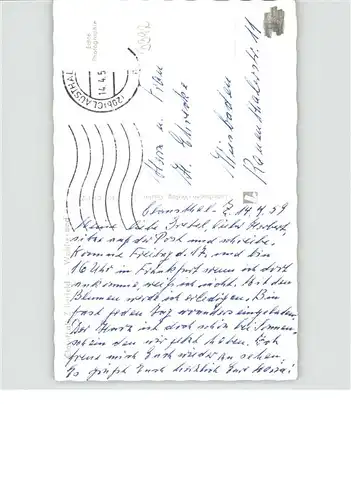 Echte
Photographie
(20b) CLAUSTHAL
14.4.5
Herrn u. Frau
Wiesbaden
Clausthal-Z. 14.4.59
Meine liebe
sitze auf der Post und schreibe.
Komme Freitag d. 17. und bin
16 Uhr in Frankfurt wenn ich dort
ankomme, weiß ich nicht. Mit den
Blumen werde ich erledigen. Bin
fast jeden Tag woanders eingeladen.
Der Harz ist doch schön bei Sonnen-
schein den wir jetzt haben. Ich
freue mich Euch wieder zu sehen.
Es grüßt Euch herzlich Eure